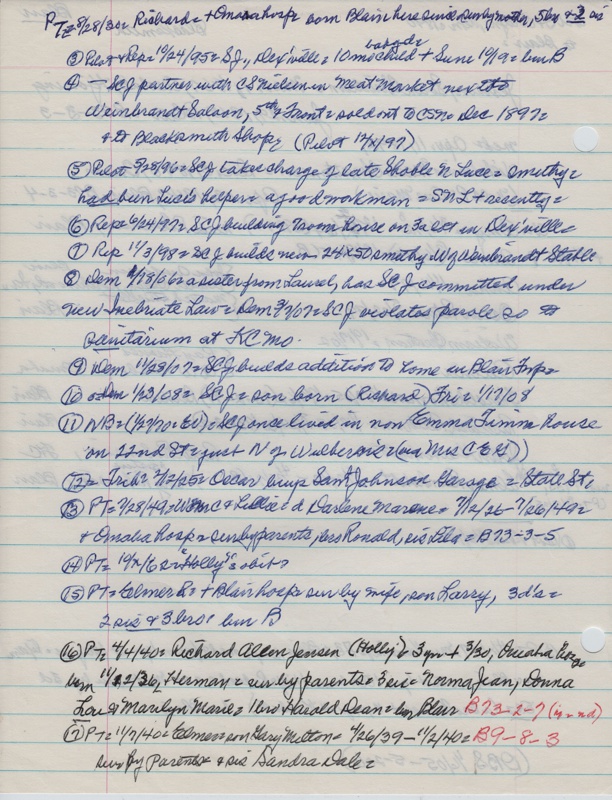 PT= 8/28/30= Richard= + Omaha hosp= born Blair here since= sur by mother, 5 bro & 2 sis
③ Pilot & Rep= 10/24/95= SCJ, Dex'ville= 10 mo old child + Sun= 10/19= bur B
④ - SCJ partner with CS Nielsen in Meat Market next to
Weinbrandt Saloon, 5th & Front= sold out to CSN= Dec 1897=
& to Blacksmith Shop= (Pilot 12/X/97)
⑤ Pilot 5/28/96= SCJ takes charge of late Shoble N Luce= smithy=
had been Luce's helper= a good workman = SNL + recently=
⑥ Rep= 6/24/97= SCJ building 7 room house on 3 a lot in Dex'ville=
⑦ Rep 11/3/98= SCJ builds new 24x50 smithy W of Weinbrandt Stable
⑧ Dem 2/18/06= a sister from Laurel, has SCJ committed under
new Inebriate Law= Dem 3/7/07= SCJ violates parole so to
sanitarium at KC Mo.
⑨ Dem 11/28/07= SCJ builds addition to home in Blair=
⑩ Dem 1/23/08= SCJ= son born (Richard) Fri= 1/17/08
⑪ NB= (1/27/70= ) = SCJ once lived in now Emma Timm House
on 22nd St= just N of = (via Mrs C E G))
⑫= Trib= 2/12/25= Oscar buys Sant Johnson Garage = State St,
⑬ PT= 7/28/49= Wm C & Lillie= d Darlene Marene= 7/12/26-7/26/49=
+ Omaha hosp= sur by parents, bro Ronald, sis Ella= B73-3-5
⑭ PT= 10/X/62= "Holly"'s obit=
⑮ PT= Elmer R= + Blair hosp= sur by wife, son Larry, 3 d's=
2 sis & 3 bro= bur B
⑯ PT= 4/4/40= Richard Allen Jensen (Holly)= 3 yr + 3/30, Omaha hosp=
born 11/22/36, Herman= sur by parents= 3 sis= Norma Jean, Donna
Lou & Marilyn Marie= 1 bro Harold Dean= bur Blair B73-2-7
⑰ PT= 11/7/40= Elmer= son Gary Milton= 4/26/39-11/2/40= B9-8-3
sur By Parents & sis Sandra Dale=